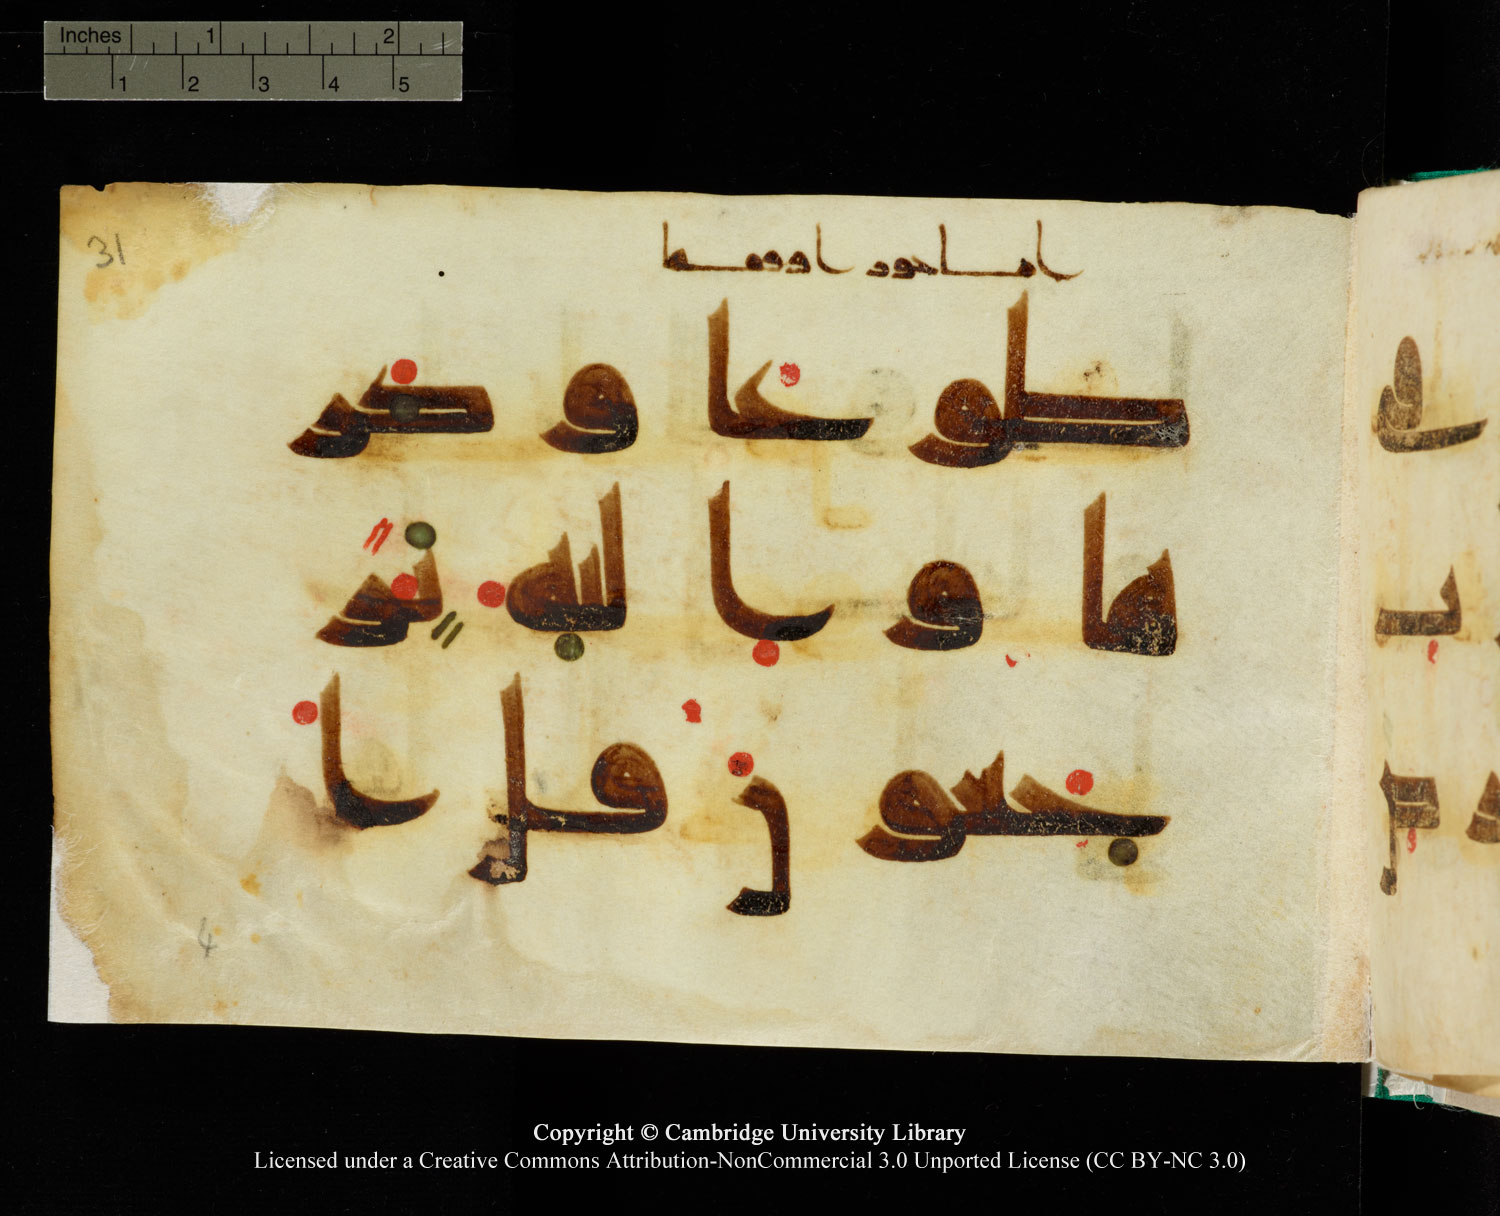 Inches 1 2
1 2 3 4 5
31
طوعا وكر
ها واليه ير
جعون قل ا
4
Copyright © Cambridge University Library
Licensed under a Creative Commons Attribution-NonCommercial 3.0 Unported License (CC BY-NC 3.0)